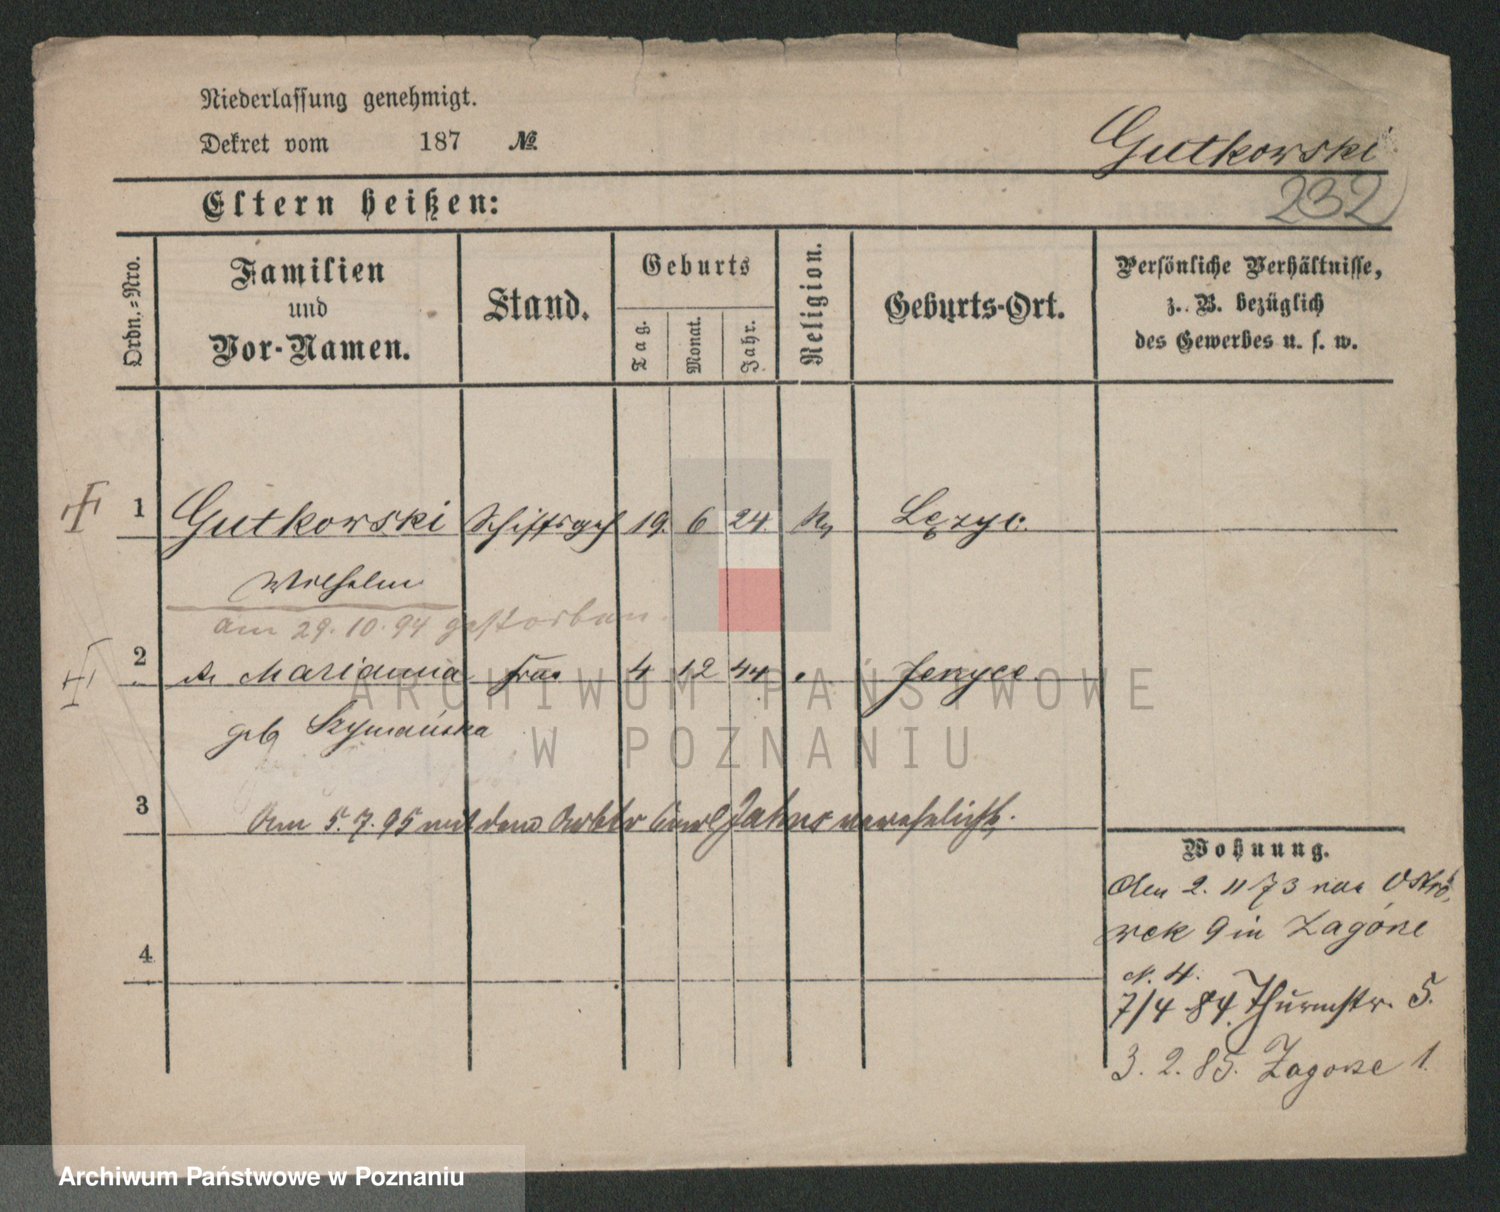 Niederlassung genehmigt.
Dekret vom 187 №
Gutkowski
232
Eltern heißen:
Ordn.-Nro.
Familien
und
Vor-Namen.
Stand.
Geburts
Tag.
Monat.
Jahr.
Religion.
Geburts-Ort.
Persönliche Verhältnisse,
z. B. bezüglich
des Gewerbes u. s. w.
1 Gutkowski 19. 6 24.
Wilhelm
am 29.10.94 gestorben.
2 Marianna Frau 4 12 44
geb Szymańska
3 Am 5.7.95 mit dem Arbtr Carl Jahns verehelicht.
4
Wohnung.
Den 2. 11 73 Ostró
wek 9 in Zagórze
N. 4.
7/4 84. Thurmstr. 5.
3. 2. 85. Zagorze 1.
ARCHIWUM PAŃSTWOWE
W POZNANIU
Archiwum Państwowe w Poznaniu